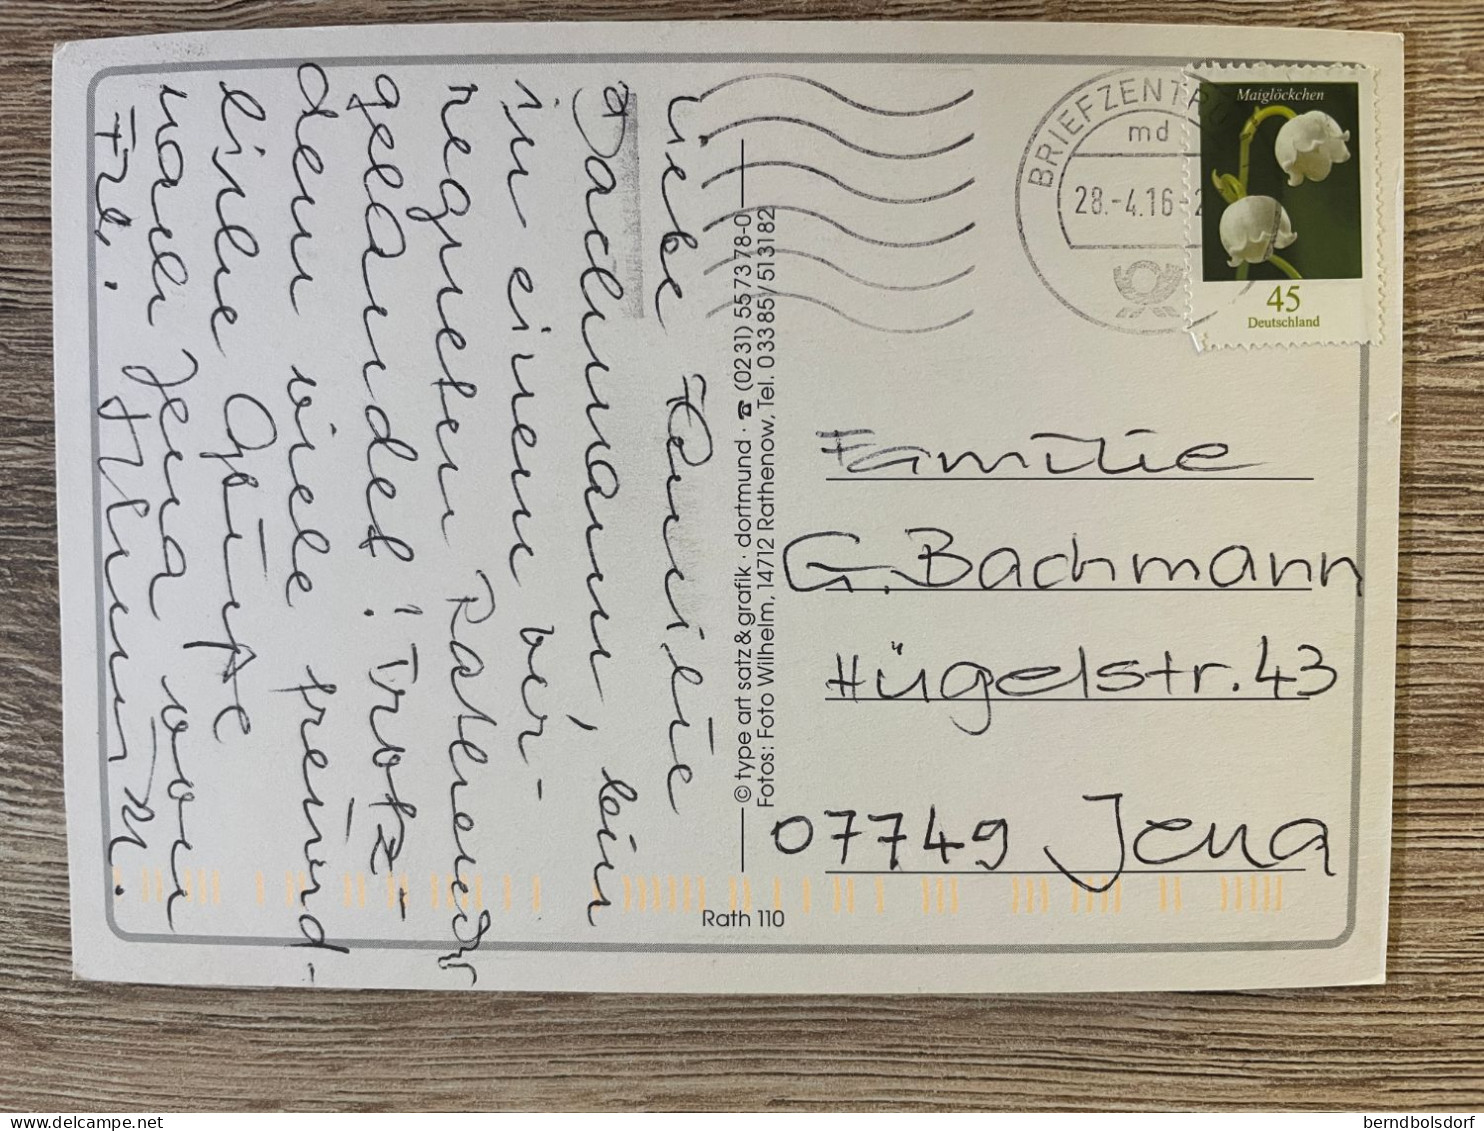 liebe Familie
Bachmann, bin
in einem ver-
regneten Rathenow
gelandet! Trotz-
dem viele freund-
liche Grüße
nach Jena von
Frl.
© type art satz & grafik · dortmund · ☎ (0231) 557378-0
Fotos: Foto Wilhelm, 14712 Rathenow, Tel. 03385/513182
Rath 110
BRIEFZENTRU
md
28.-4.16-2
Maiglöckchen
45
Deutschland
Familie
G. Bachmann
Hügelstr. 43
07749 Jena
berndbolsdorf